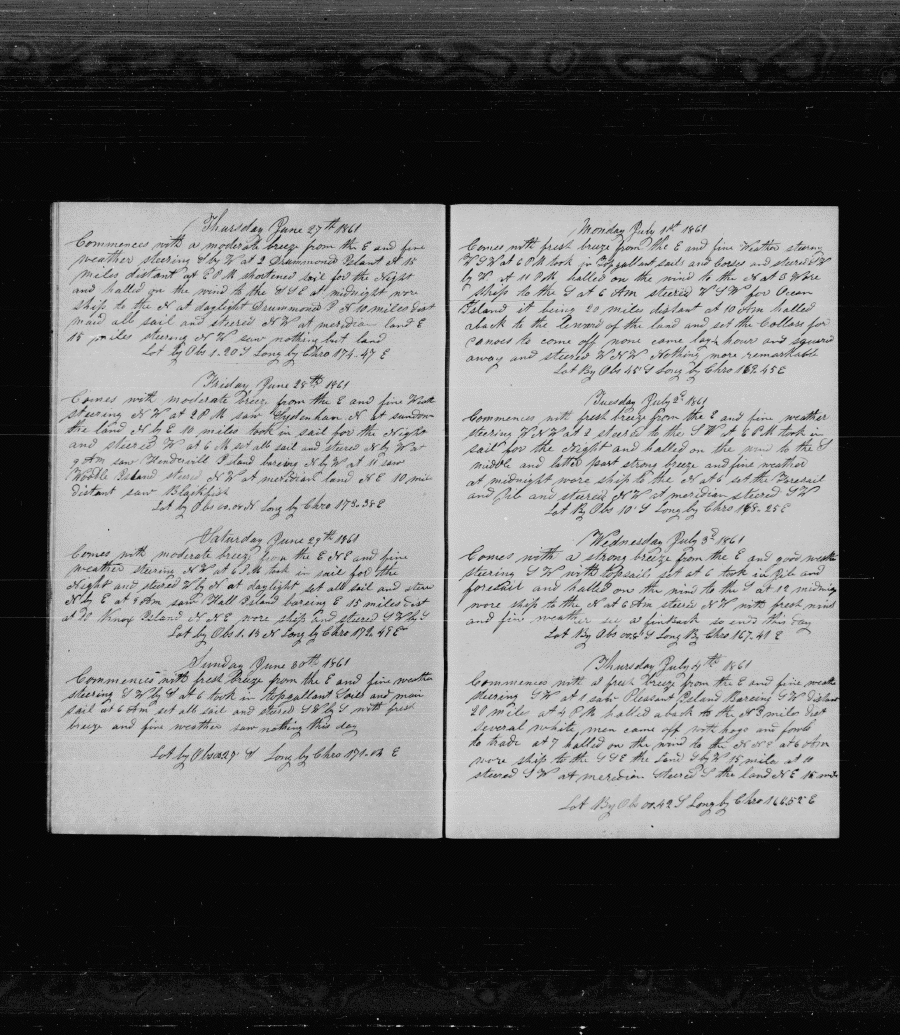 Thursday June 27th 1861
Commences with a moderate breeze from the E and fine
weather steering S by W at 2 Drummond Island N 15
miles distant at 6 P M shortened sail for the Night
and halled on the wind to the S S E at midnight wore
ship to the N at daylight Drummond I N 10 miles dist
maid all sail and steered N W at meridian land E
15 miles steering N W saw nothing but land
Lat by Obs 1.20 S Long by Chro 174.47 E
Friday June 28th 1861
Comes with moderate breeze from the E and fine
steering N W at 2 P M saw Sydenham N at sundown
the land N by E 10 miles took in sail for the Night
and steered W at 6 M set all sail and steered N W at
9 Am saw Hendervill Island bearing N by W at 11 saw
Woddle Island steered N W at meridian land N E 10 mile
distant saw Blackfish
Lat by Obs 00.04 N Long by Chro 173.38 E
Saturday June 29th 1861
Comes with moderate breeze from the E N E and fine
weather steering N W at 6 P M took in sail for the
Night and steered W by N at daylight set all sail and steere
N by E at 8 Am saw Hall Island bearing E 15 miles dist
at 10 Knox Island N N E wore ship and steered S W by S
Lat by Obs 1.13 N Long by Chro 172.49 E
Sunday June 30th 1861
Commences with fresh breeze from the E and fine weathe
steering S W by S at 6 took in topgallant sails and main
sail at 6 Am set all sail and steered S W by S with fresh
breeze and fine weather saw nothing this day
Lat by Obs 00.27 Long by Chro 171.02 E
Monday July 1st 1861
Comes with fresh breeze from the E and fine Weather steering
W S W at 6 P M took in topgallant sails and Corses and steered S W
by W at 11 P M halled on the wind to the N at 3 Wore
ship to the S at 6 Am steered W S W for Ocean
Island it being 20 miles distant at 10 Am halled
aback to the leward of the land and set the Collars for
canoes to come off none came lay ½ hour and squared
away and steered W N W Nothing more remarkable
Lat By Obs 45 S Long by Chro 169.45 E
Tuesday July 2d 1861
Commences with fresh breeze from the E and fine weather
steering W N W at 2 steered to the S W at 6 P M took in
sail for the Night and halled on the wind to the S
middle and latter part strong breeze and fine weather
at midnight wore ship to the N at 6 set the Foresail
and Jib and steered N W at meridian steered S W
Lat By Obs 10 S Long by Chro 168.25 E
Wednesday July 3d 1861
Comes with a strong breeze from the E and good weathe
steering S W with topsails set at 6 took in Jib and
foresker and halled on the wind to the S at 12 midnig
wore ship to the N at 6 Am steered N W with fresh wind
and fine weather see a finback so ends this day
Lat By Obs 00.8 S Long By Chro 167.41 E
Thursday July 4th 1861
Commences with a fresh breeze from the E and fine weathe
steering S W at 1 saw Pleasant Island Baring S W distant
20 miles at 4 P M halled aback to the N 3 miles dist
several white men came off with hogs and fowls
to trade at 7 halled on the wind to the N N E at 6 Am
wore ship to the S S E the Land S by W 15 miles at 10
steered S W at meridian steered S the land N E 15 miles
Lat By Obs 00.42 S Long by Chro 166.52 E